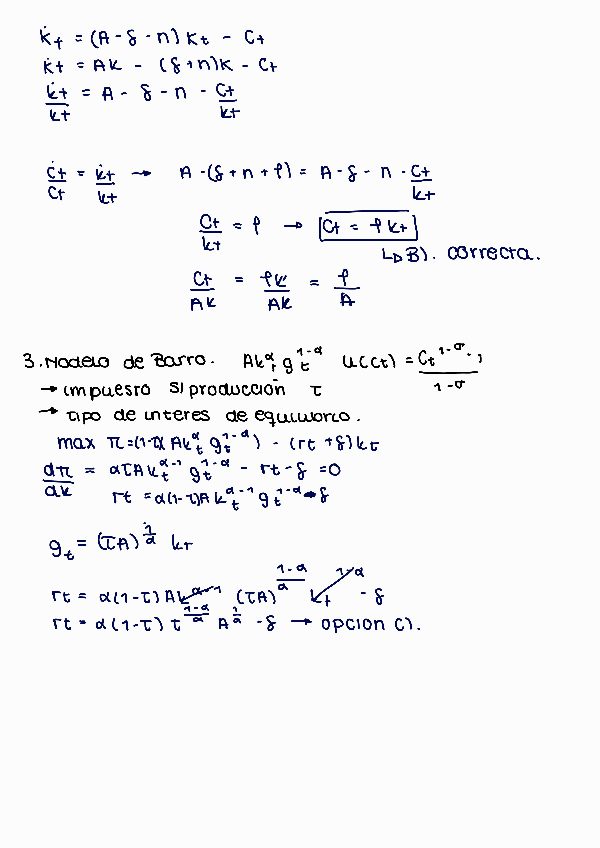 k̇t = (A - δ - n) kt - Ct
k̇t = Ak - (δ+n)k - Ct
k̇t/kt = A - δ - n - Ct/kt
Ċt/Ct = k̇t/kt → A - (δ + n + ρ) = A - δ - n - Ct/kt
Ct/kt = ρ → Ct = ρkt
↳ B). correcta.
Ct/Ak = ρk/Ak = ρ/A
3. Modelo de Barro. Ak_t^α g_t^(1-α) u(ct) = Ct^(1-σ)/(1-σ) ,
→ impuesto s/producción τ
→ tipo de interes de equilibrio.
max π = (1-τ)(Ak_t^α g_t^(1-α)) - (rt + δ)kt
dπ/dk = ατAk_t^(α-1) g_t^(1-α) - rt - δ = 0
rt = α(1-τ)Ak_t^(α-1) g_t^(1-α) - δ
g_t = (τA)^(1/α) kt
rt = α(1-τ)Ak^(α-1) (τA)^((1-α)/α) kt^(1-α) - δ
rt = α(1-τ) τ^((1-α)/α) A^(1/α) - δ → opcion C).